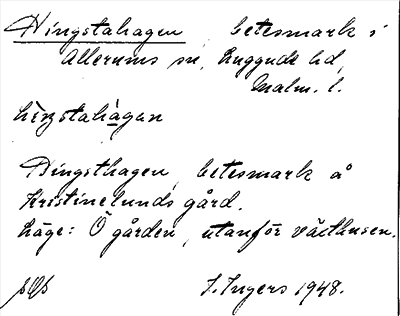 Hingstahagen, betesmark i
Allerums sn, Luggude hd,
Malm. l.
hìŋstahàgan
Hingsthagen, betesmark å
Kristinelunds gård.
Läge: Ö gården, utanför växthusen.
I. Ingers 1948.